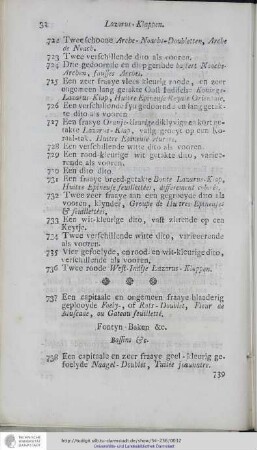 52 Lazarus-Klappen.
722 Twee schoone Arche-Noachs-Doubletten, Arche
de Noach.
723 Twee verschillende dito als vooren.
724 Drie gedoornde en diep geribde bastert Noachs-
Archen, fausses Arches.
725 Een zeer fraaye vlees kleurig roode, en zeer
ongemeen lang getakte Oost Indische Konings-
Lazarus Klap, Huitre Epineuse Royale Orientale.
726 Een verschillende fyn gedoornde en lang getak-
te dito als vooren.
727 Een fraaye Oranje-kleurige dik lyvige en kort ge-
takte Lazarus-Klap, vast gegroeyt op een
Koraaltak, Huitre Epineuse
728 Een verschillende witte dito als vooren.
729 Een rood-kleurige wit getakte dito, varieeren-
de als vooren.
730 Een dito dito.
731 Een fraaye breed-getakte Lazarus-Klap,
Huitre Epineuse feuilletée, different
732 Twee zeer fraaye aan een gegroeyde dito als
vooren, klynder, Groupe de Huitres Epineuses
& feuilletées.
733 Een wit-kleurige dito, vast zittende op een
Keytje.
734 Twee verschillende witte dito, varieerende
als vooren.
735 Vier gefoelyde, en rood- en wit-kleurige dito,
verschillende als vooren.
736 Twee roode West-Indise Lazarus-Klappen.
737 Een capitaale en ongemeen fraaye bladerig
geplooyde Foely-, of Rots-Doublet,
ou Gateau feuilletté.
Fonteyn-Bakken &c.
Bassins &c.
738 Een capitaale en zeer fraaye geel-kleurig ge-
foelyde Naagel-Doublet, Tuilée
739